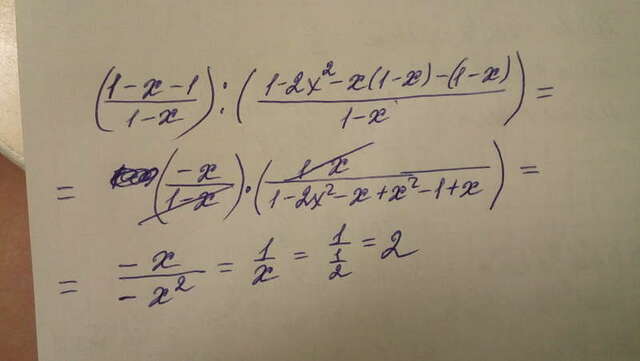 (1-x-1/1-x) : (1-2x²-x(1-x)-(1-x)/1-x) =
= (-x/1-x) · (1-x/1-2x²-x+x²-1+x) =
= -x/-x² = 1/x = 1/½ = 2